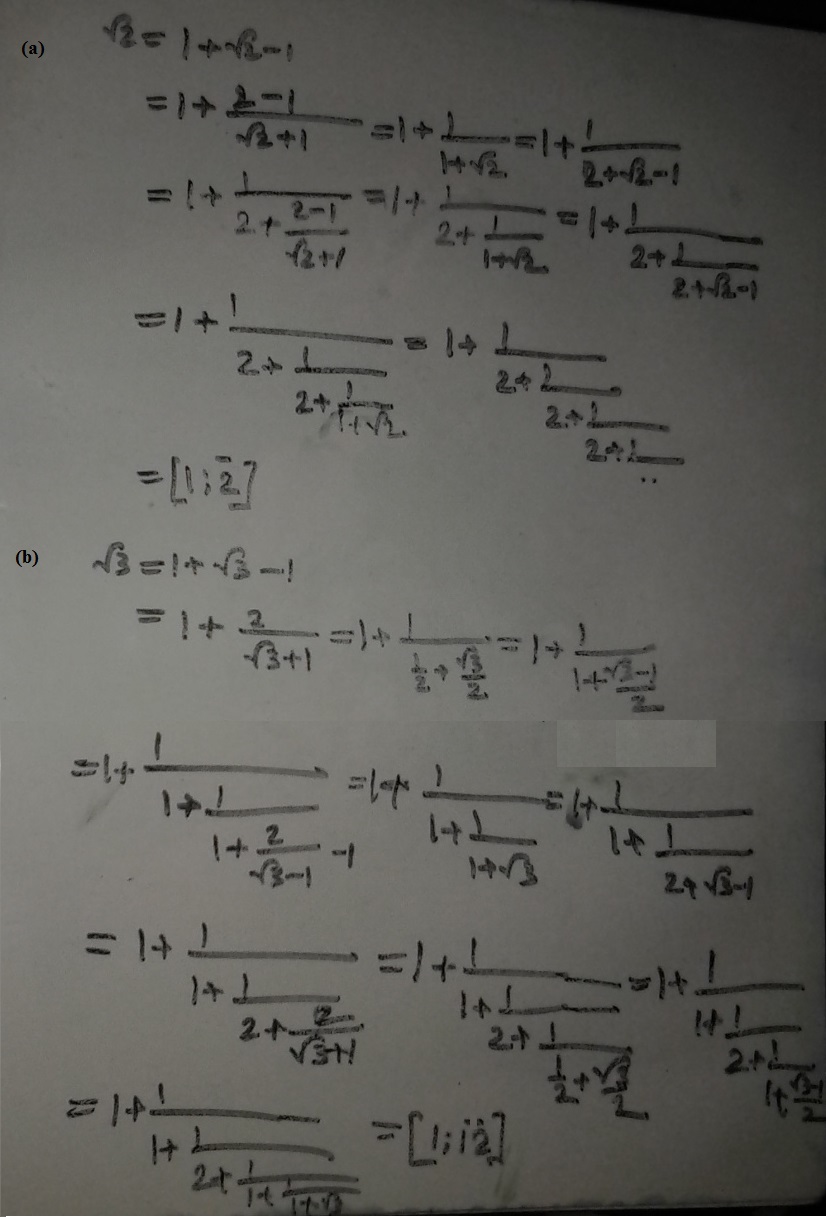 (a) √2 = 1+√2-1
= 1+ (2-1)/(√2+1) = 1+ 1/(1+√2) = 1+ 1/(2+√2-1)
= 1+ 1/(2+ (2-1)/(√2+1)) = 1+ 1/(2+ 1/(1+√2)) = 1+ 1/(2+ 1/(2+√2-1))
= 1+ 1/(2+ 1/(2+ 1/(1+√2))) = 1+ 1/(2+ 1/(2+ 1/(2+ 1/..)))
= [1; 2̄]
(b) √3 = 1+ √3 -1
= 1+ 2/(√3+1) = 1+ 1/(1/2 + √3/2) = 1+ 1/(1+ (√3-1)/2)
= 1+ 1/(1+ 1/(1+ 2/(√3-1) -1)) = 1+ 1/(1+ 1/(1+√3)) = 1+ 1/(1+ 1/(2+√3-1))
= 1+ 1/(1+ 1/(2+ 2/(√3+1))) = 1+ 1/(1+ 1/(2+ 1/(1/2 + √3/2))) = 1+ 1/(1+ 1/(2+ 1/(1+ (√3-1)/2)))
= 1+ 1/(1+ 1/(2+ 1/(1+ 1/(1+√3)))) = [1; i̇2̇]